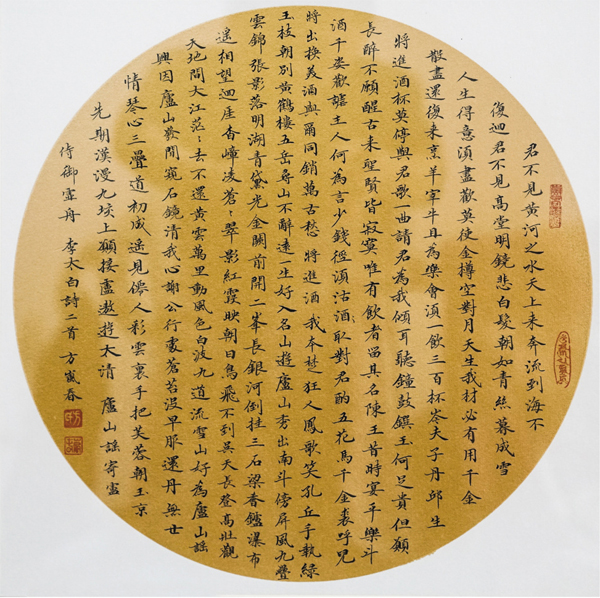 君不見黃河之水天上来奔流到海不
復迴君不見高堂明鏡悲白髮朝如青絲暮成雪
人生得意須盡歡莫使金樽空對月天生我材必有用千金
散盡還復来烹羊宰牛且為樂會須一飲三百杯岑夫子丹邱生
將進酒杯莫停與君歌一曲請君為我傾耳聽鐘鼓饌玉何足貴但願
長醉不願醒古来聖賢皆寂寞唯有飲者留其名陳王昔時宴平樂斗
酒千姿歡謔主人何為言少錢徑須沽酒取對君酌五花馬千金裘呼兒
將出換美酒與爾同銷萬古愁 將進酒 我本楚狂人鳳歌笑孔丘手執綠
玉枝朝別黃鶴樓五岳尋山不辭遠一生好入名山遊廬山秀出南斗傍屏風九疊
雲錦張影落明湖青黛光金闕前開二峯長銀河倒挂三石梁香鑪瀑布
遙相望迴崖沓嶂凌蒼〻翠影紅霞映朝日鳥飛不到吳天長登高壯觀
天地間大江茫〻去不還黃雲萬里動風色白波九道流雪山好為廬山謠
興因廬山發閒窺石鏡清我心謝公行處蒼苔沒早服還丹無世
情琴心三疊道初成遙見僊人彩雲裏手把芙蓉朝玉京
先期漢漫九垓上願接盧敖遊太清 廬山謠寄盧
侍御虛舟 李太白詩二首 方 春